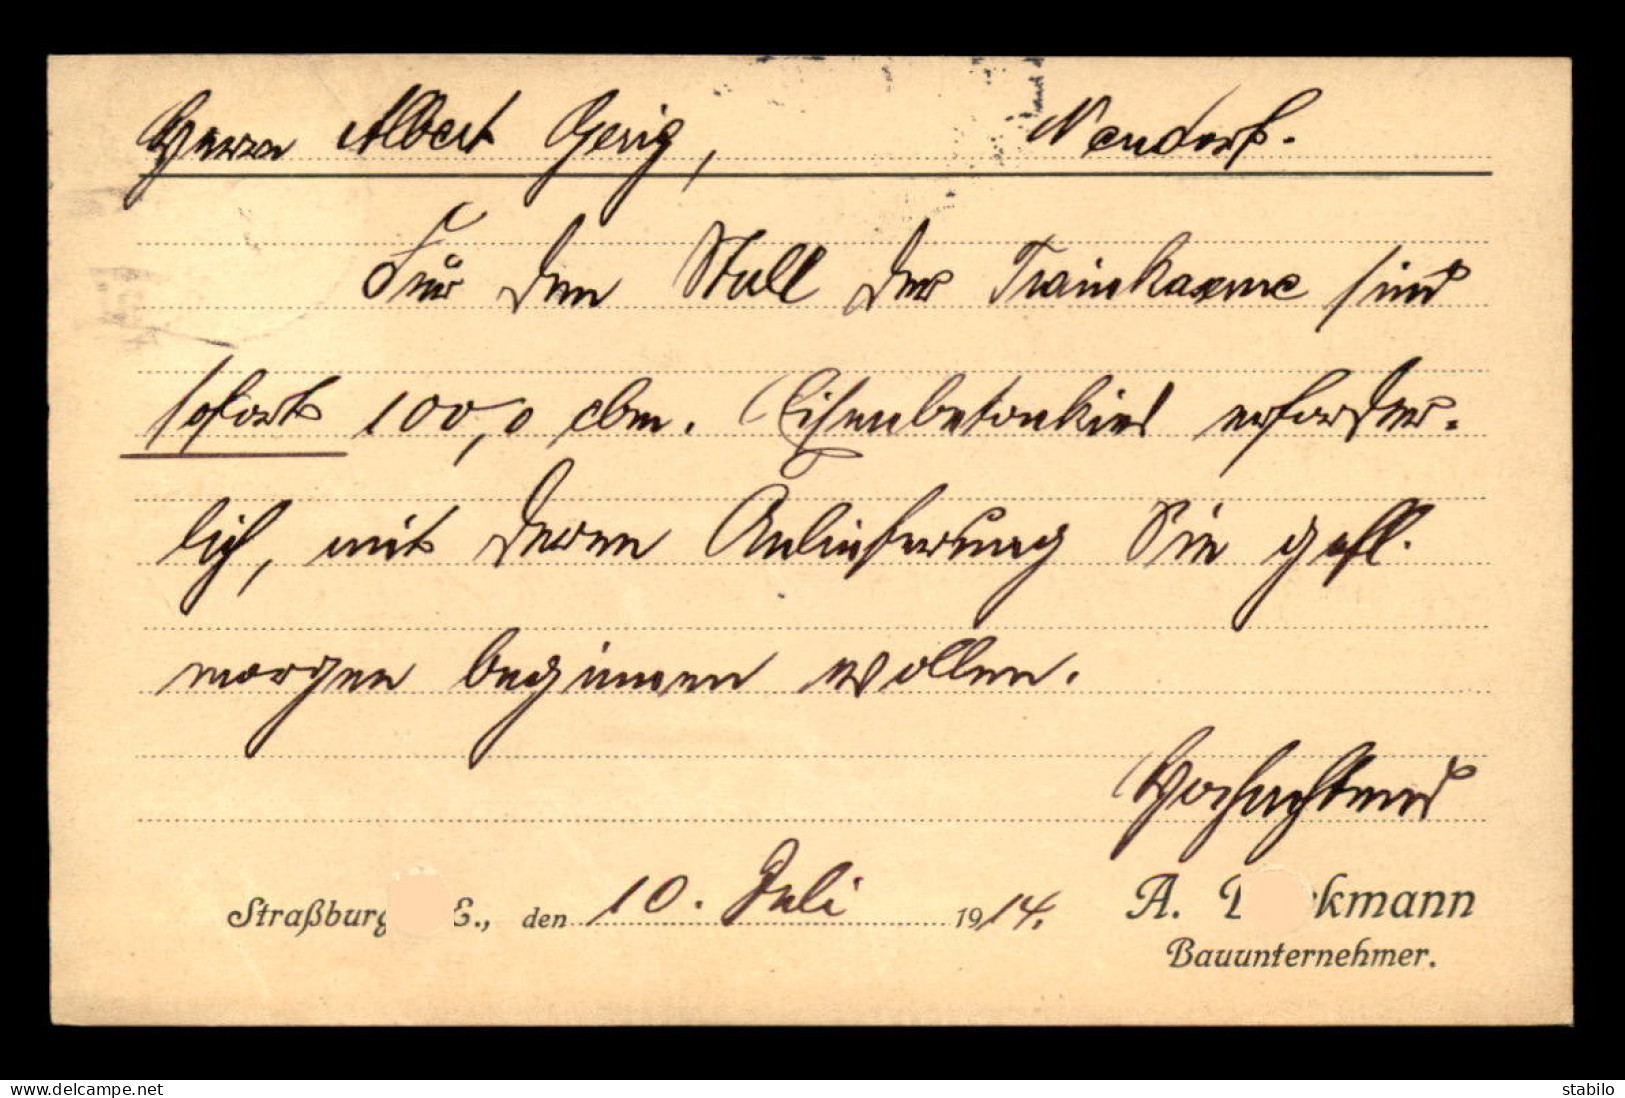 Herrn Albert Gerig, Neudorf.
Für den Stall der Trainkaserne sind
sofort 100,0 cbm. Eisenbetonkies erforder-
lich, mit deren Anlieferung Sie gefl.
morgen beginnen wollen.
Hochachtend
Straßburg E., den 10. Juli 1914. A. D kmann
Bauunternehmer.
www.delcampe.net stabilo